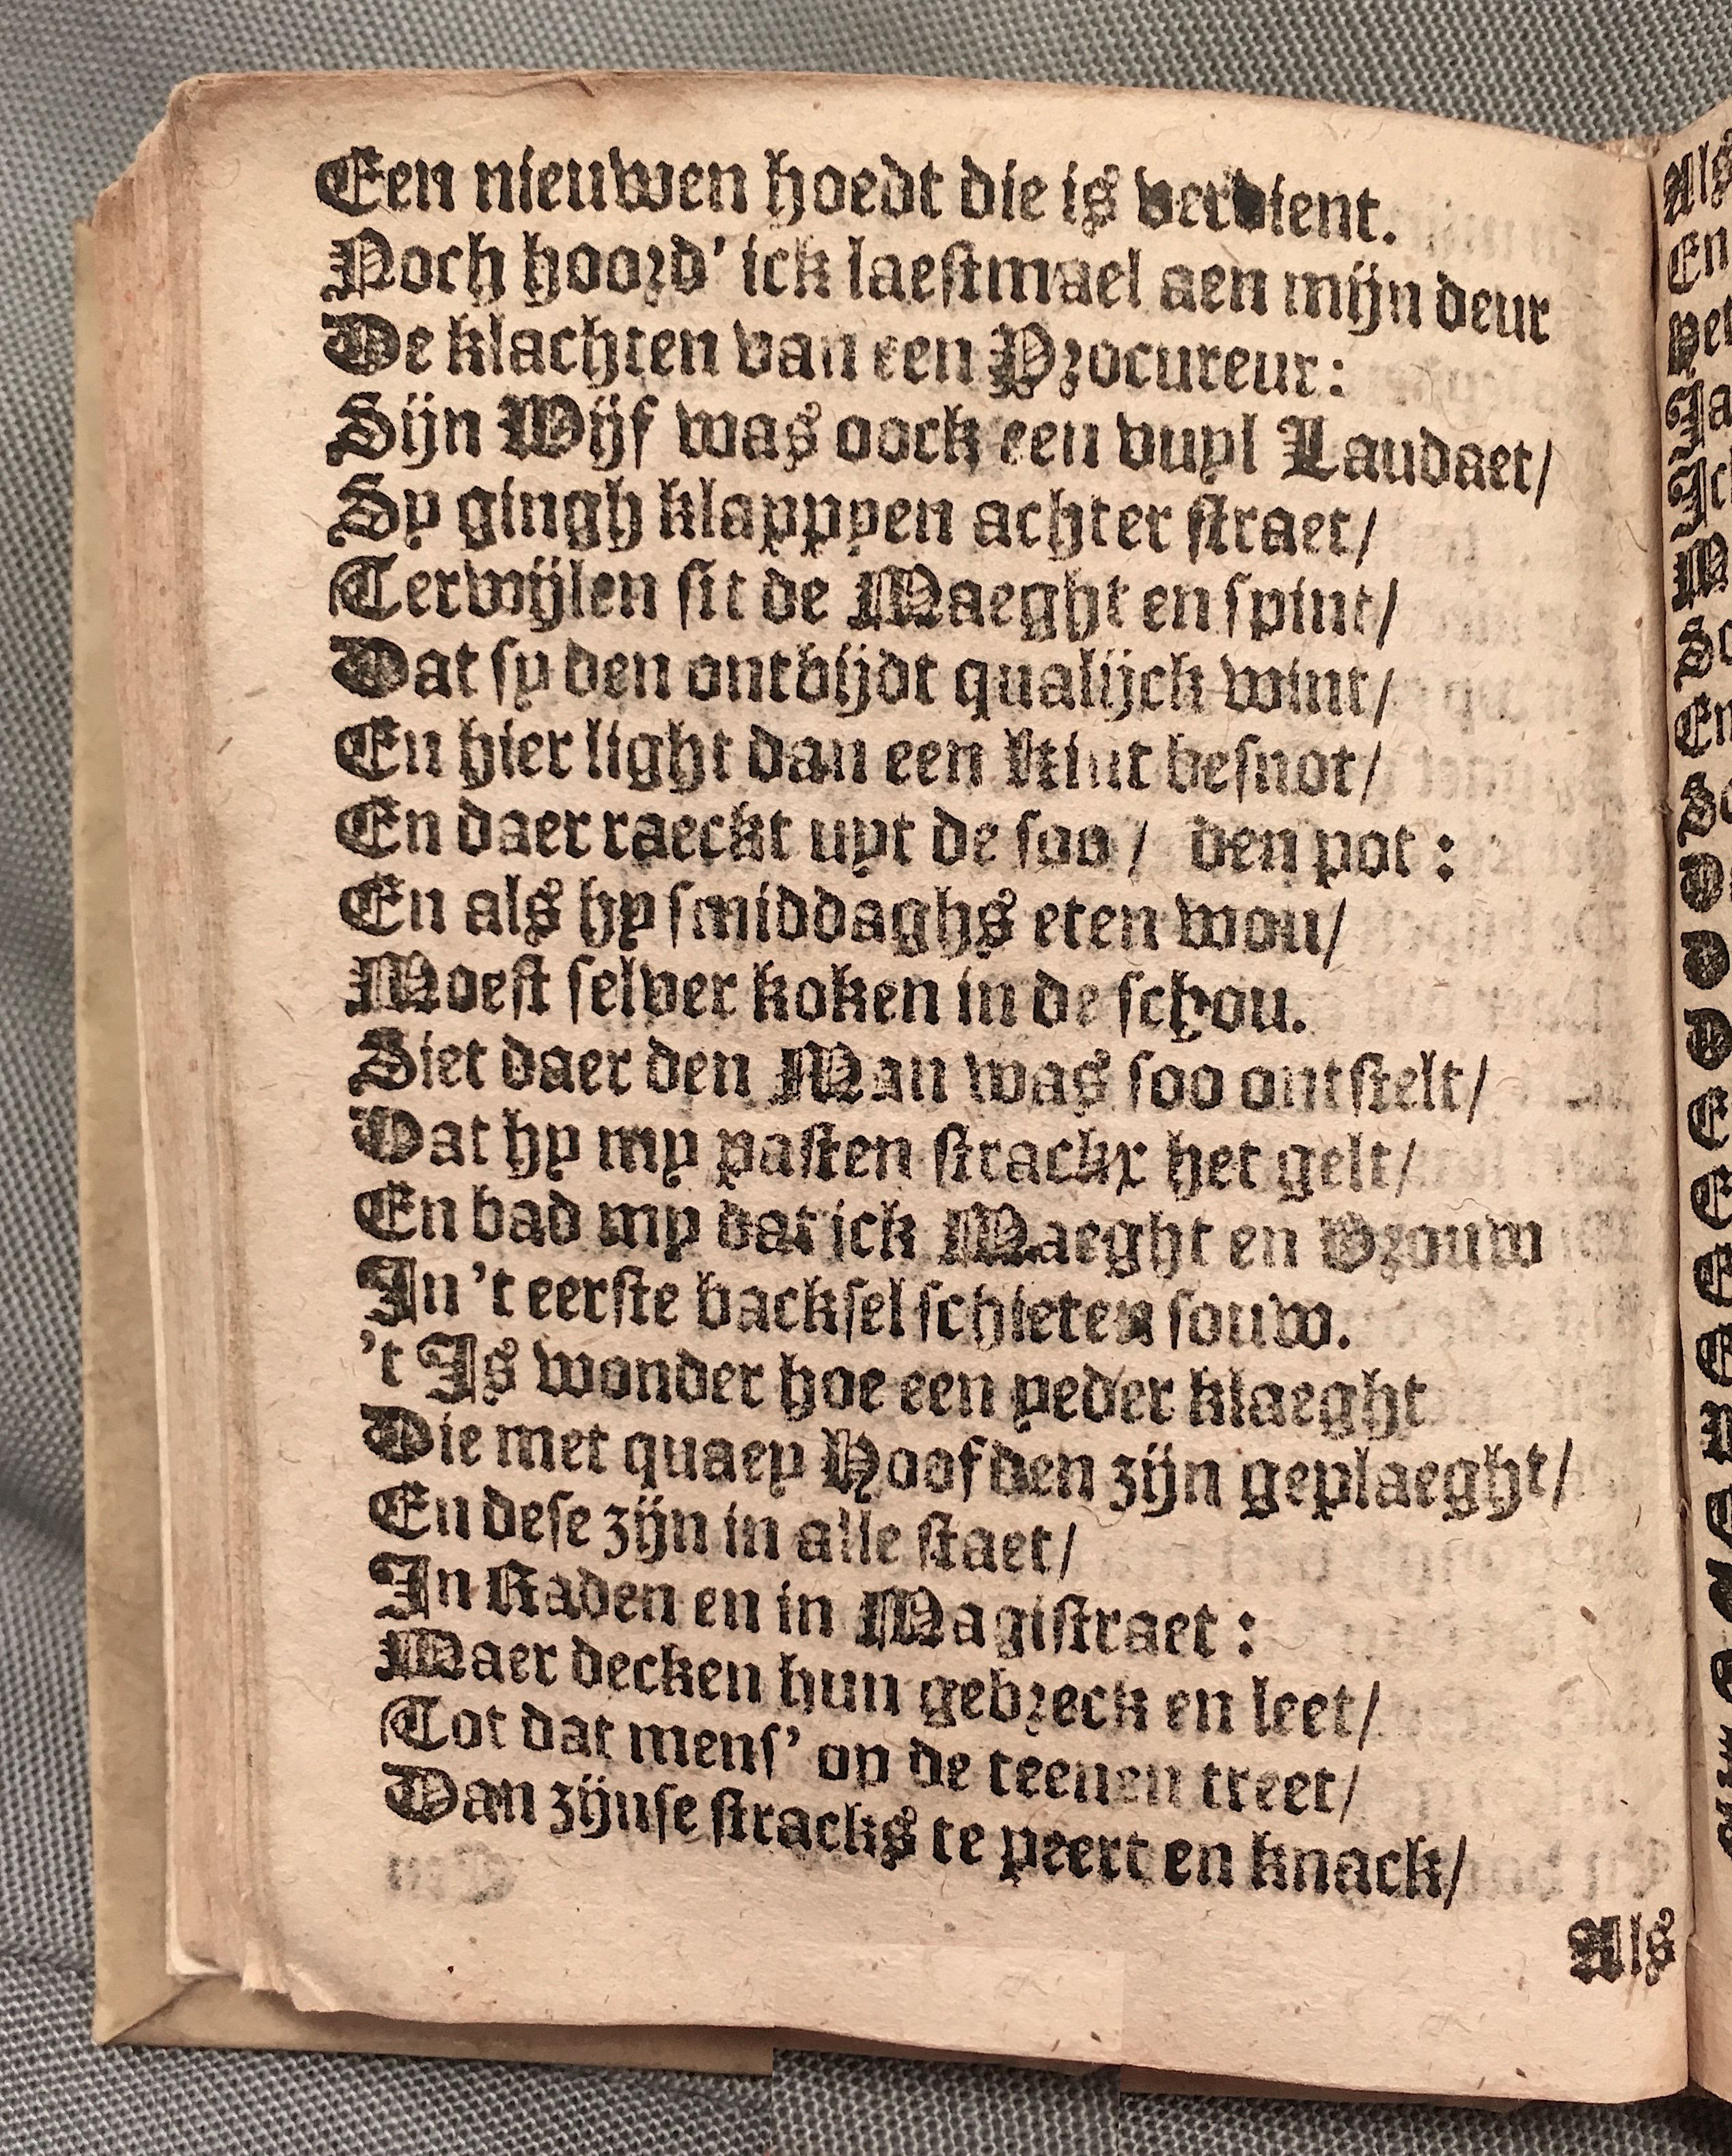 Een nieuwen hoedt die is verdient.
Noch hoord' ick laestmael aen mijn deur
De klachten van een Procureur:
Sijn Wijf was oock een vuyl Laudaet/
Sy gingh klappyen achter straet/
Terwijlen sit de Maeght en spint/
Dat sy den ontbijdt qualijck wint/
En hier light dan een Kint besnot/
En daer raeckt uyt de soo/ den pot:
En als hy smiddaghs eten wou/
Moest selver koken in de schou.
Siet daer den Man was soo ontstelt/
Dat hy my pasten strackx het gelt/
En bad my dat ick Maeght en Vrouw
In 't eerste backsel schieten souw.
't Is wonder hoe een yeder klaeght
Die met quaey Hoofden zijn geplaeght/
En dese zijn in alle staet/
In Raden en in Magistraet:
Maer decken hun gebreck en leet/
Tot dat mens' op de teenen treet/
Dan zijnse stracks te peert en knack/
Als
Als
En
Yet
Ja
Ick
So
En